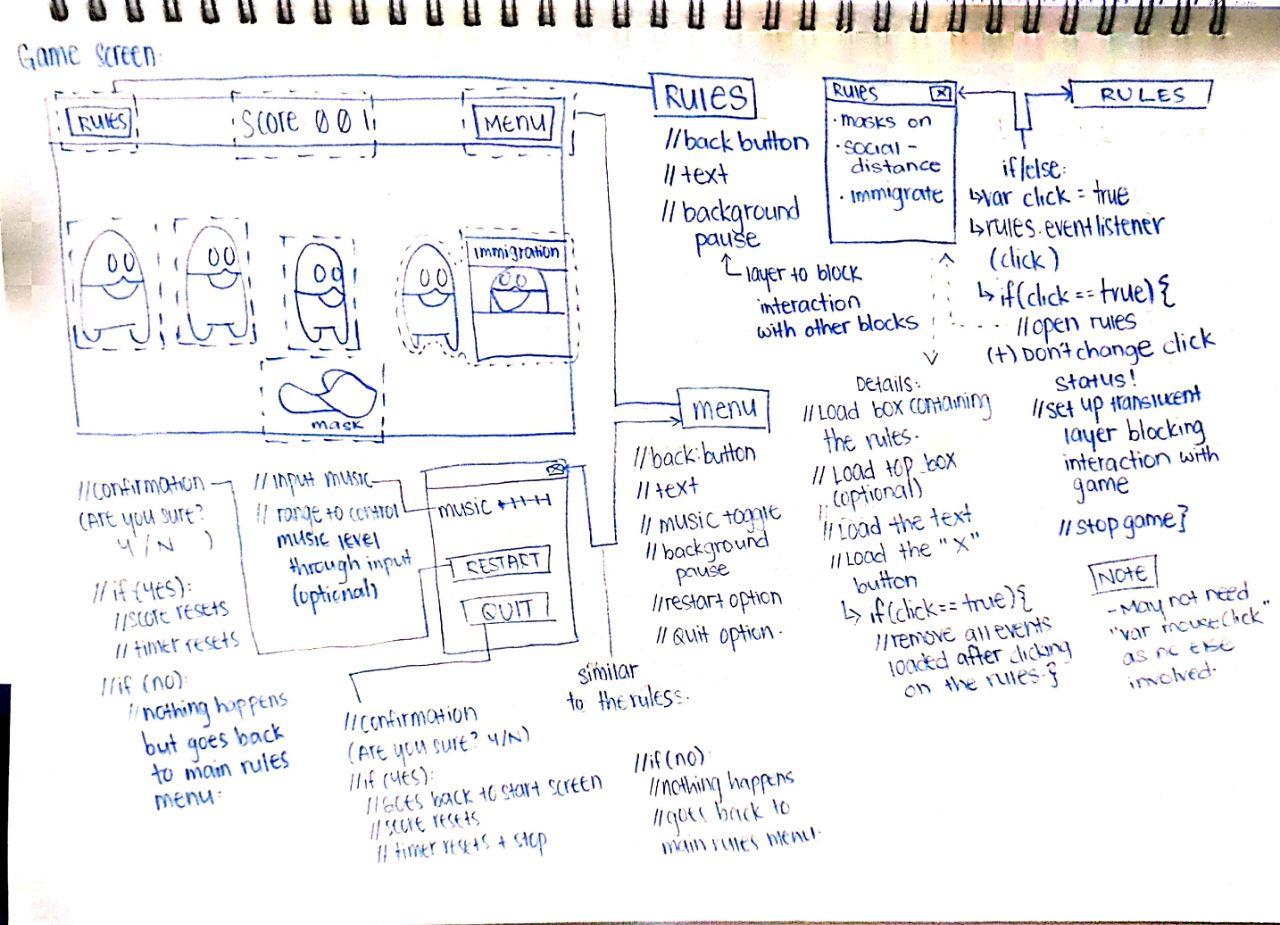 Game Screen:
RULES
Score 001
MENU
immigration
mask
RULES
//back button
//text
//background
pause
layer to block
interaction
with other blocks
RULES
X
• masks on
• social-
distance
• immigrate
RULES
if/else:
↳var click = true
↳rules.eventlistener
(click)
↳if(click == true){
//open rules
(+) Don't change click
status!
//set up translucent
layer blocking
interaction with
game
//stop game}
NOTE
- May not need
"var mouseClick"
as no else
involved.
Details:
//Load box containing
the rules.
//Load top box
(optional)
//Load the text
//Load the "X"
button
↳ if(click == true){
//remove all events
loaded after clicking
on the rules.}
menu
//back:button
//text
//music toggle
//background
pause
//restart option
//Quit option.
X
music
RESTART
QUIT
similar
to the ruless.
//input music
//range to control
music level
through input
(optional)
//confirmation
(Are you sure?
Y/N )
//if (yes):
//score resets
//timer resets
//if (no):
//nothing happens
but goes back
to main rules
menu.
//confirmation
(Are you sure? Y/N)
//if (yes):
//Goes back to start screen
//score resets
//timer resets + stop
//if(no):
//nothing happens
//goes back to
main rules menu.